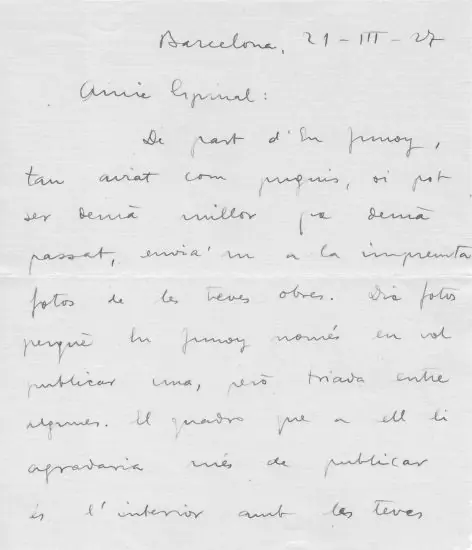 Barcelona, 21-III-27
Amic Espinal:
De part d'En Junoy,
tan aviat com puguis, si pot
ser demà millor pa demà
passat, envia'm a la impremta
fotos de les teves obres. Dic fotos
perquè En Junoy només en vol
publicar una, però triada entre
algunes. El quadro que a ell li
agradaria més de publicar
és l'interior amb les teves